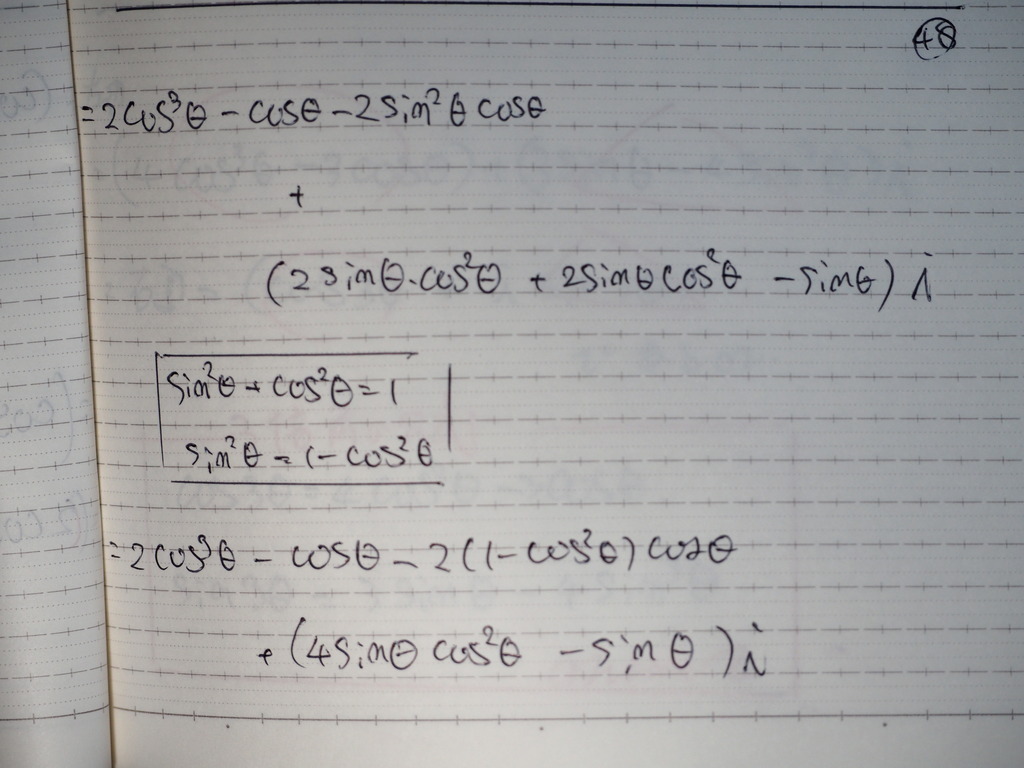 48
=2cos³θ - cosθ - 2sin²θ cosθ
+
(2sinθ.cos²θ + 2sinθcos²θ - sinθ) i
sin²θ + cos²θ = 1
sin²θ = 1 - cos²θ
=2cos³θ - cosθ - 2(1-cos²θ) cosθ
+ (4sinθ cos²θ - sinθ) i